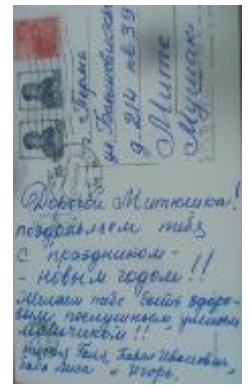 г. Пермь
д. 214 кв 39
Мите
Мушак
Дорогой Митюшка!
поздравляем тебя
с праздником -
- новым годом!!
Желаем тебе быть здоро-
вым послушным умным
мальчиком!!
тетя Галя, Павел Иванович,
баба Лиза и Игорь.